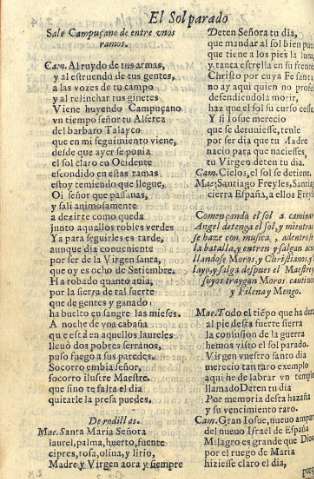 El Sol parado
Sale Campuçano de entre unos
ramos.
Cam. Al ruydo de tus armas,
y al estruendo de tus gentes,
a las vozes de tu campo
y al relinchar tus ginetes
Viene huyendo Campuçano
vn tiempo señor tu Alferez
del barbaro Talayco
que en mi seguimiento viene,
desde que ayer se ponia
el sol claro en Ocidente
escondido en estas ramas
estoy temiendo que llegue,
Oi señor que passauas,
y sali animosamente
a dezirte como queda
junto aquellos robles verdes
Ya para seguirles es tarde,
aunque dia conueniente
por ser de la Virgen santa,
que oy es ocho de Setiembre.
Ha robado quanto auia,
por la fuerça de tal suerte
que de gentes y ganado
ha buelto en sangre las mieses.
A noche de vna cabaña
que està en aquellos laureles
lleuò dos pobres serranos,
puso fuego a sus paredes.
Socorro embia señor,
socorro ilustre Maestre.
que sino te falta el dia
quitarle la presa puedes.
De rodillas.
Mae. Santa Maria Señora
laurel, palma, huerto, fuente
cipres, rosa, oliua, y lirio,
Madre y Virgen aora y siempre
Deten Señora tu dia,
que mandar al sol bien puedes
que tiene a los pies la luna
y tanta estrella en su frente
Christo por cuya Fe santa
no ay aqui quien no profe
defendiendola morir,
haz que el sol su curso dexe
Y si Iosue merecio
que se detuuiesse, tenle
por ser dia que tu Madre
nacio para que nacíesses,
tu Virgen deten tu dia.
Cam. Cielos, el sol se detiene.
Mae; Santiago Freyles, Santiag
cierra España, a ellos Freyl
Comença el sol a caminar
Angel detenga el sol, y mientras
se haze con musica, adentro
la batalla, y entren y salgan acu
llandose Moros, y Christianos, y
layco, y salga despues el Maestre,
suyos traygan Moros cautiuos
y Filena y Mengo.
Mae. Todo el tiẽpo que ha dura
al pie desta fuerte sierra
la confusion de la guerra
hemos visto el sol parado.
Virgen vuestro santo dia
merecio tan raro exemplo
aqui he de labrar vn templo
llamado Deten tu dia
Por memoria desta hazaña
y su vencimiento raro.
Cam. Gran Iosue, nueuo amparo
del nueuo Israel de España
Milagro es grande que Dios
por el ruego de Marta
hiziesse claro el dia,